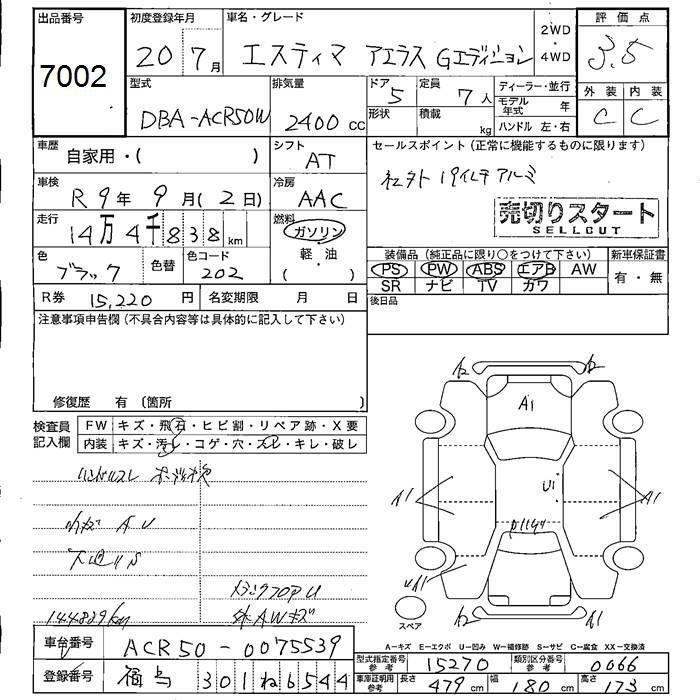 出品番号 初度登録年月 車名・グレード 2WD・4WD 評価点
7002 20 7月 エスティマ アエラス Gエディション 3.5
型式 排気量 ドア 定員 ディーラー・並行 外装 内装
DBA-ACR50W 2400cc 5 7人 モデル年式 年 C C
形状 積載 kg ハンドル 左・右
車歴 自家用・( ) シフト AT セールスポイント(正常に機能するものに限ります)
車検 R9年 9月(2日) 冷房 AAC 19インチ アルミ
売切りスタート
SELLCUT
走行 14万4千838km 燃料 ガソリン・軽・油 ( )
色 ブラック 色替 色コード 202
装備品(純正品に限り○をつけて下さい) 新車保証書
PS PW ABS エアB AW 有・無
SR ナビ TV カワ
R券 15,220円 名変期限 月 日 後日品
注意事項申告欄(不具合内容等は具体的に記入して下さい)
修復歴 有(箇所 )
検査員記入欄 FW キズ・飛石・ヒビ割・リペア跡・X要
内装 キズ・汚レ・コゲ・穴・スレ・キレ・破レ
ハンドルスレ
144,889km
A2 A2
A1
A1 U1 A1
A2 A1
スペア
A-キズ E-エクボ U-凹み W-補修跡 S-サビ C-腐食 XX-交換済
車台番号 ACR50-0075539
型式指定番号 参考 15270 類別区分番号 参考 0066
登録番号 301 ね 6544
車庫証明用 参考 長さ 479cm 幅 180cm 高さ 173cm